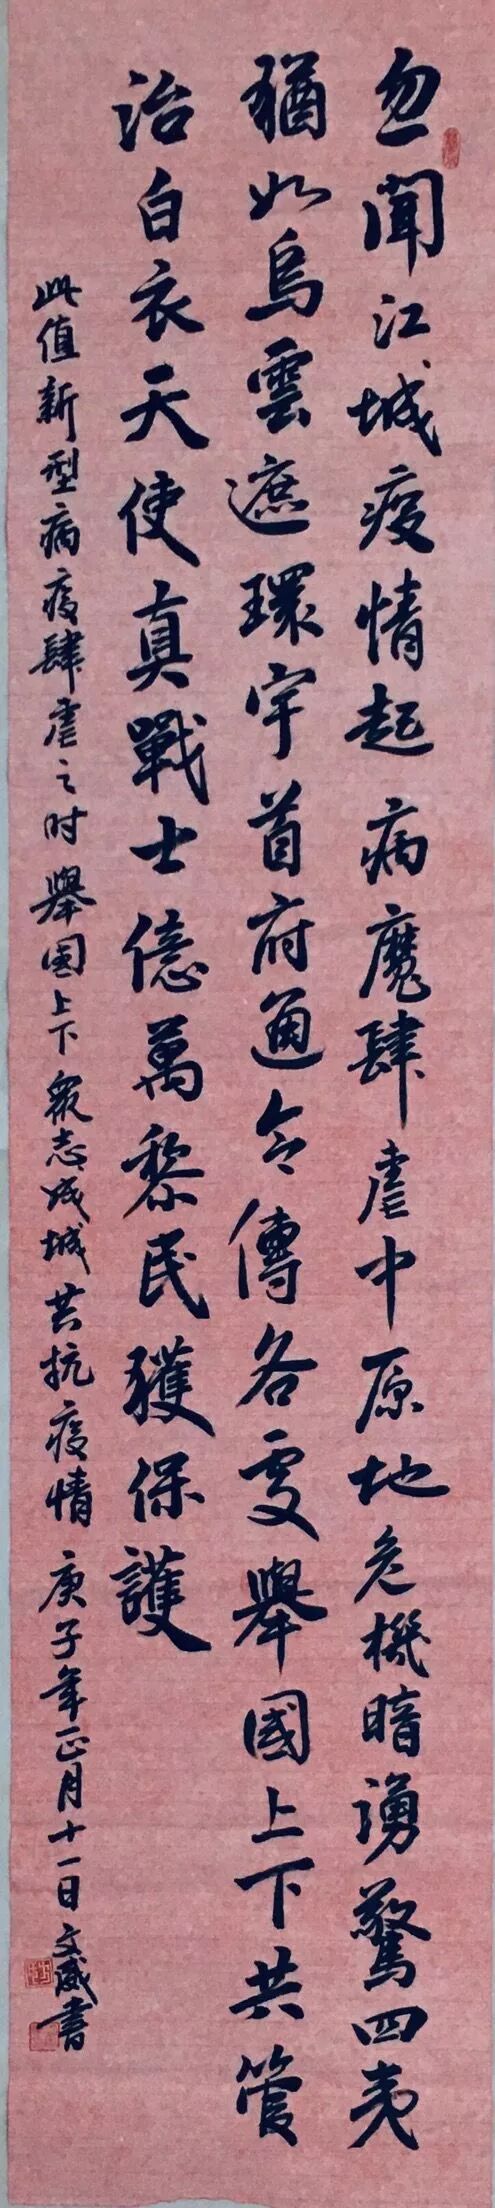 忽聞江城疫情起病魔肆虐中原地危機暗湧驚四夷
猶如烏雲遮環宇首府通令傳各處舉國上下共管
治白衣天使真戰士億萬黎民獲保護
此值新型病疫肆虐之时舉国上下衆志成城共抗疫情 庚子年正月十一日文威書